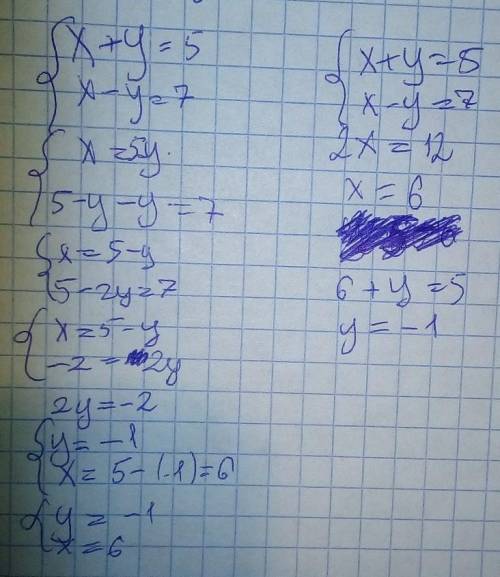 x+y=5
x-y=7
x=5y.
5-y-y=7
x=5-y
5-2y=7
x=5-y
-2=2y
2y=-2
y=-1
x=5-(-1)=6
y=-1
x=6
x+y=5
x-y=7
2x=12
x=6
6+y=5
y=-1